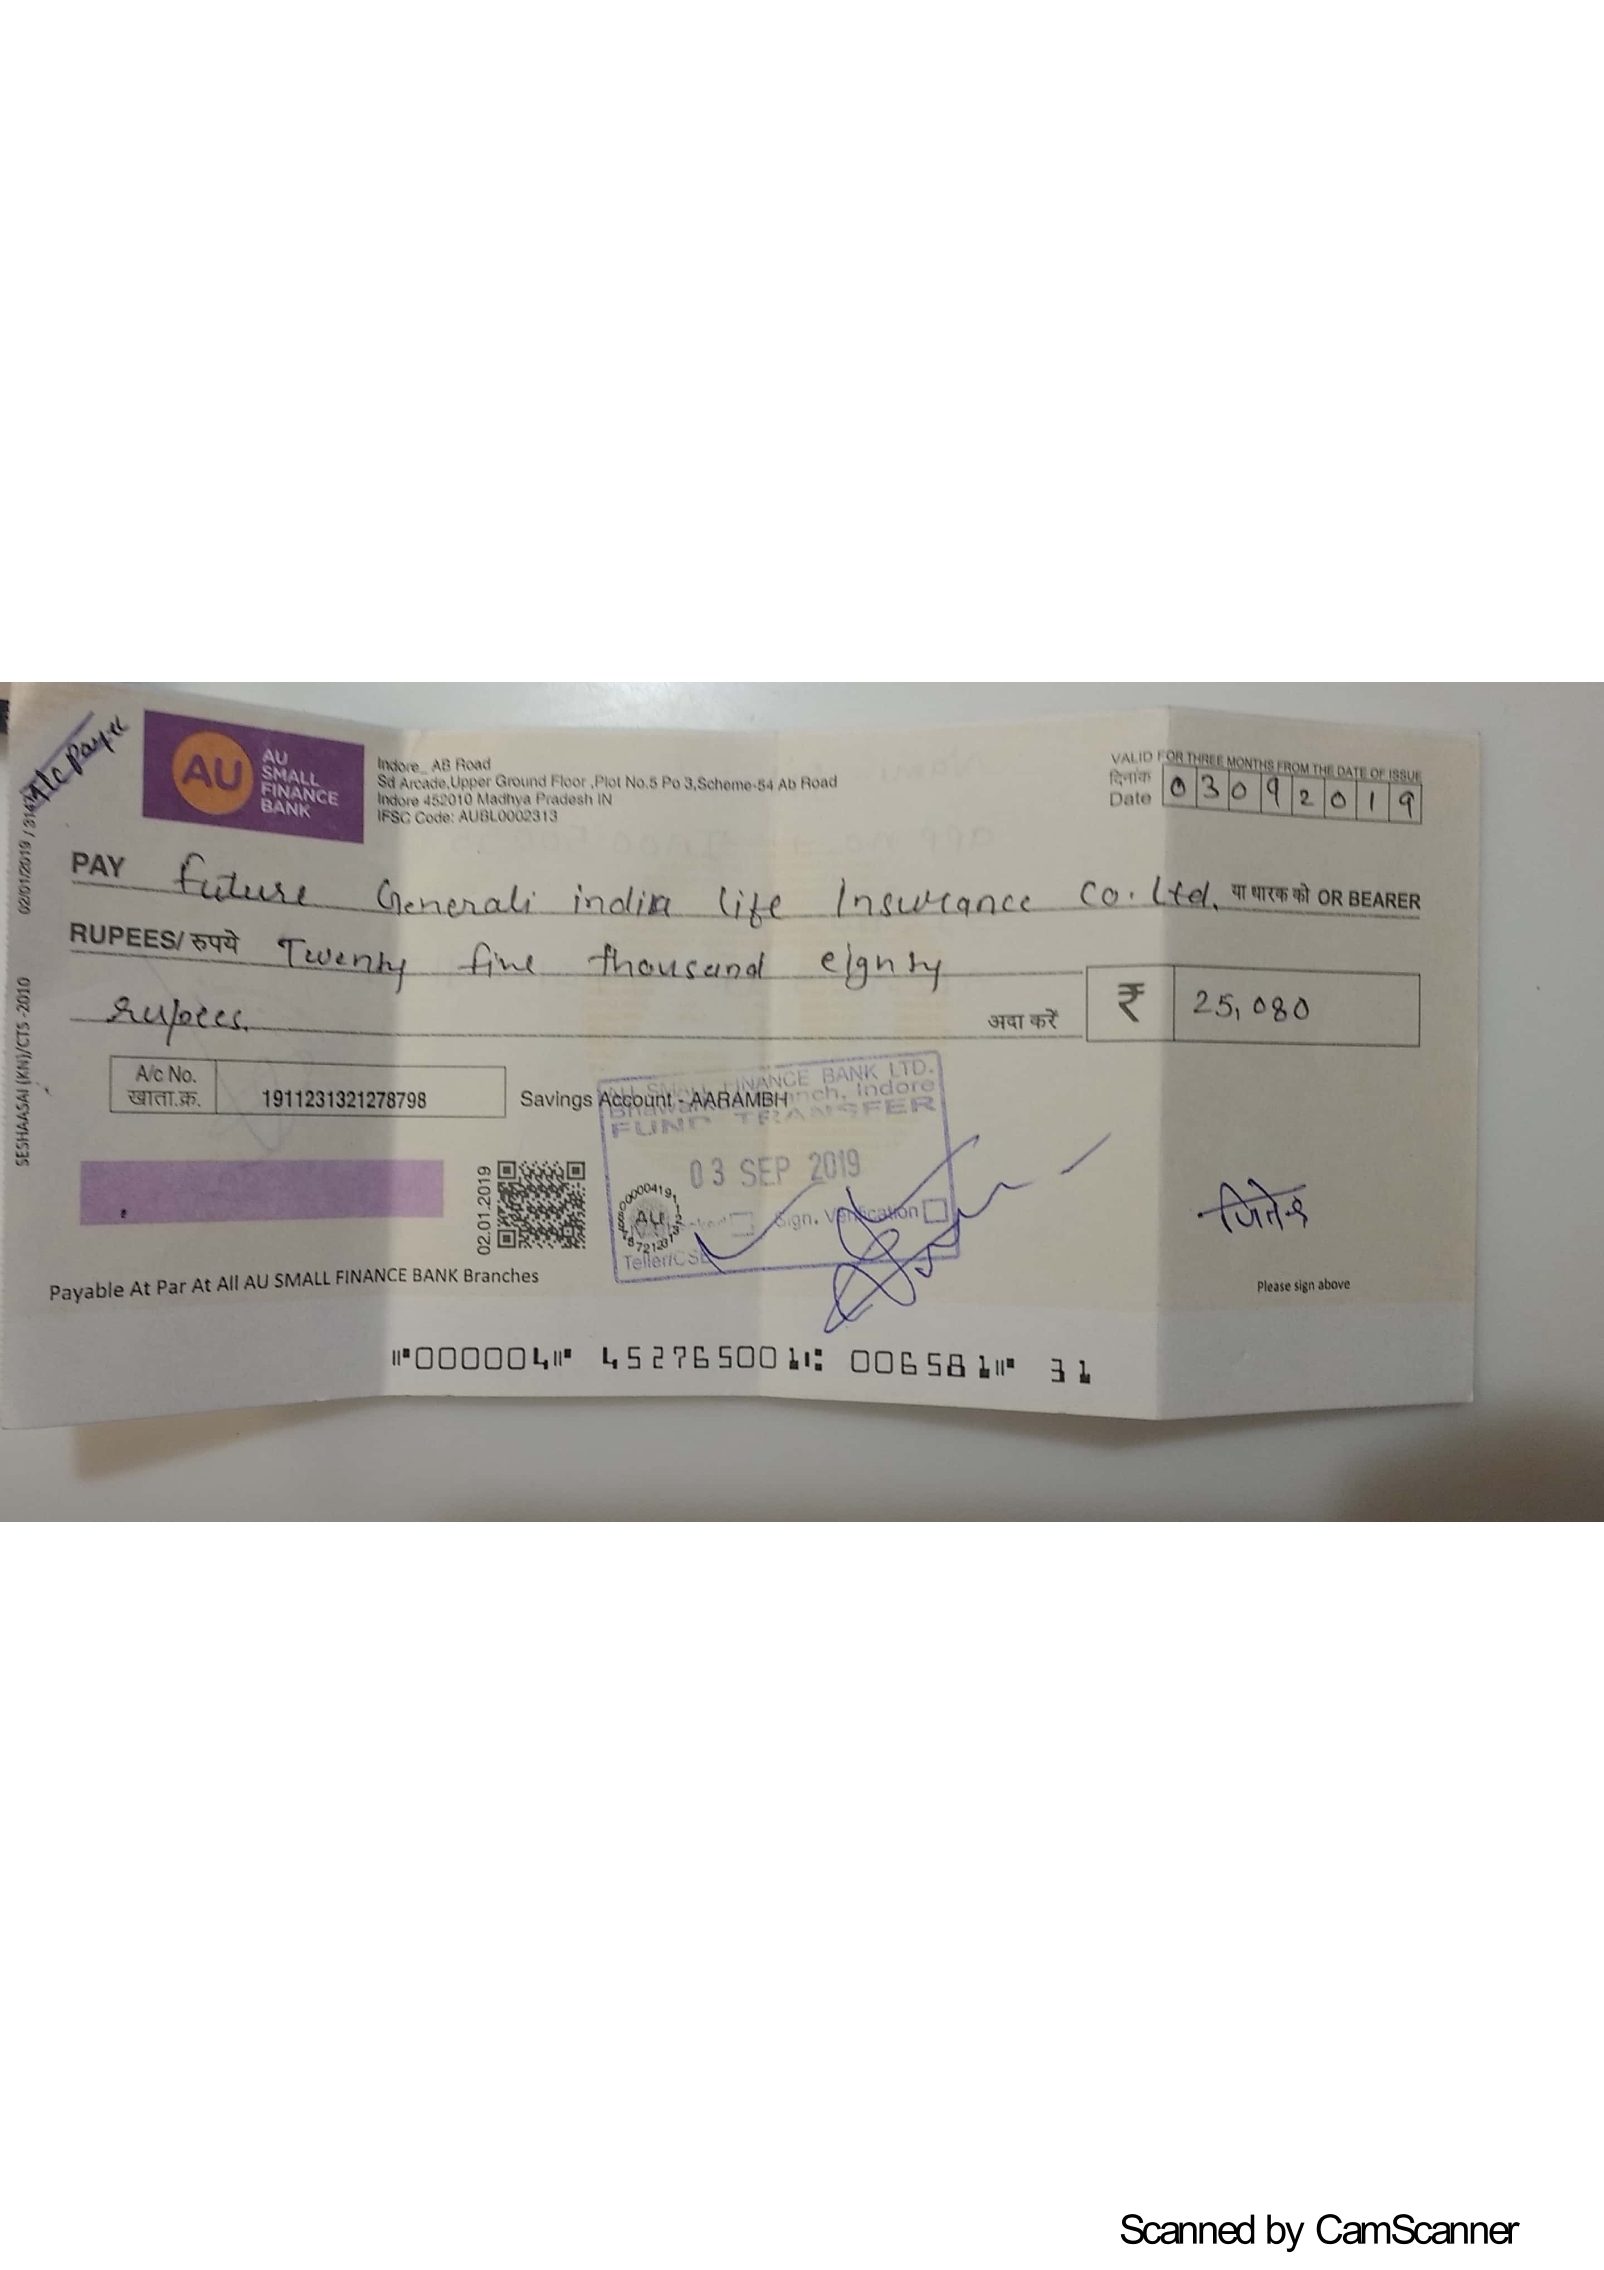 A/c Payee
AU
AU
SMALL
FINANCE
BANK
Indore_ AB Road
Sd Arcade,Upper Ground Floor ,Plot No.5 Po 3,Scheme-54 Ab Road
Indore 452010 Madhya Pradesh IN
IFSC Code: AUBL0002313
VALID FOR THREE MONTHS FROM THE DATE OF ISSUE
दिनांक
Date 03092019
PAY future Generali india life Insurance Co. Ltd. या धारक को OR BEARER
RUPEES/ रुपये Twenty five thousand eighty
rupees. अदा करें ₹ 25,080
A/c No.
खाता.क्र. 1911231321278798 Savings Account - AARAMBH
AU SMALL FINANCE BANK LTD.
Branch, Indore
FUND TRANSFER
03 SEP 2019
Sign. Verification
Teller/CSE
AU
02.01.2019
जितेश
Payable At Par At All AU SMALL FINANCE BANK Branches
Please sign above
⑈000004⑈ 452765001⑆ 006581⑈ 31
SESHAASAI (KN)/CTS -2010
02/01/2019
Scanned by CamScanner